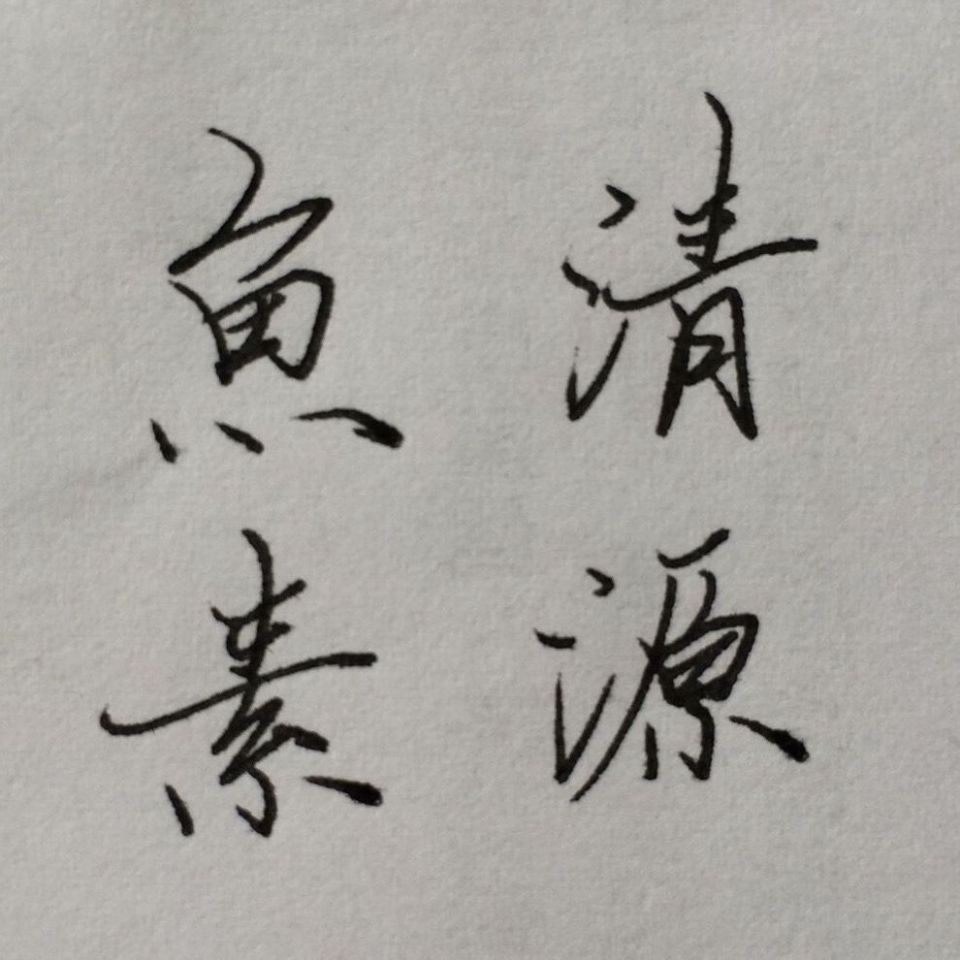 清源
魚素